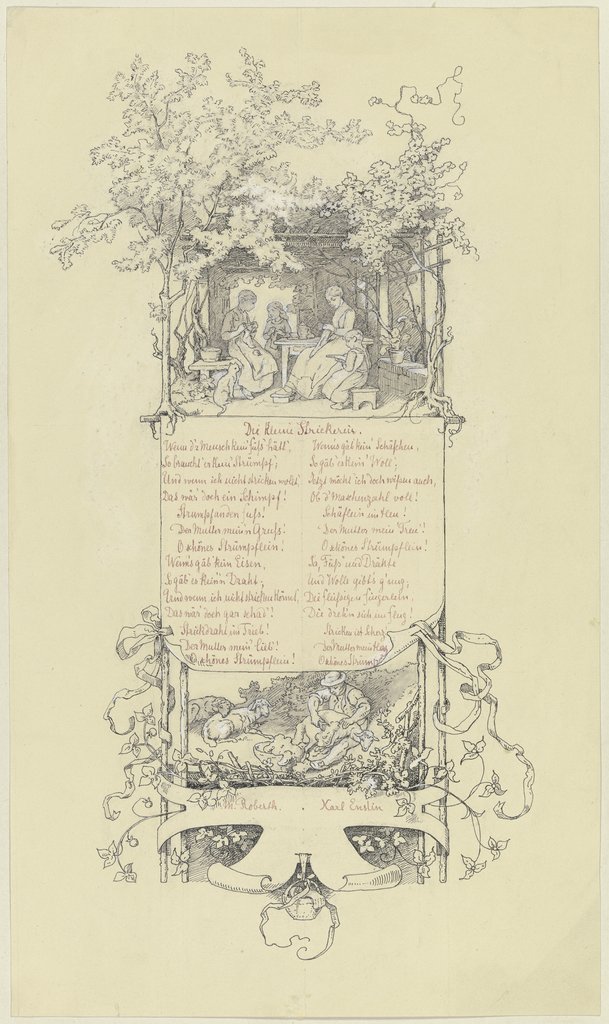 Die kleine Strickerin.
Wenn d'r Mensch kein' Fuß hätt',
So braucht' er kein' Strümpf;
Und wenn ich nicht stricken wollt',
Das wär' doch ein Schimpf!
Strumpf an den Fuß!
Der Mutter mein'n Gruß!
O schönes Strümpflein!
Wenn's gäb' kein Eisen,
So gäb' es kein'n Draht,
Und wenn ich nicht stricken könnt',
Das wär' doch gar schad'!
Strickdraht im Trieb!
Der Mutter mein' Lieb!
O schönes Strümpflein!
Wenn's gäb' kein' Schäfchen,
So gäb' es kein' Woll';
Jetzt möcht' ich doch wissen auch,
Ob d' Maschenzahl voll!
Schäflein
Der Mutter mein' Treu'!
O schönes Strümpflein!
Ja, Füß' und Drähte
Und Wolle gibt's g'nug;
Die fleißigen Fingerlein,
Die dreh'n sich im Flug!
Stricken ist Scherz
Der Mutter mein
O schönes Strümpf
W. Roberth. . Karl Enslin